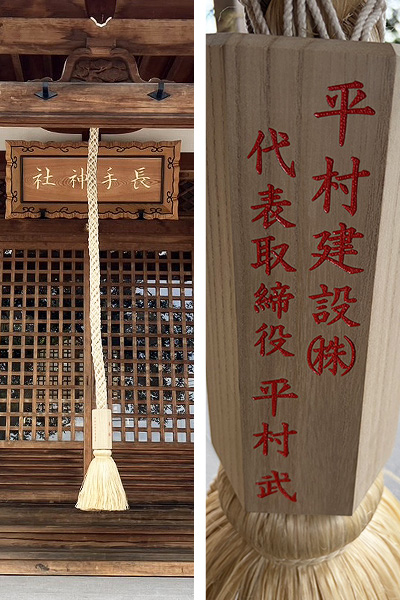 長手神社
平村建設㈱
代表取締役 平村武